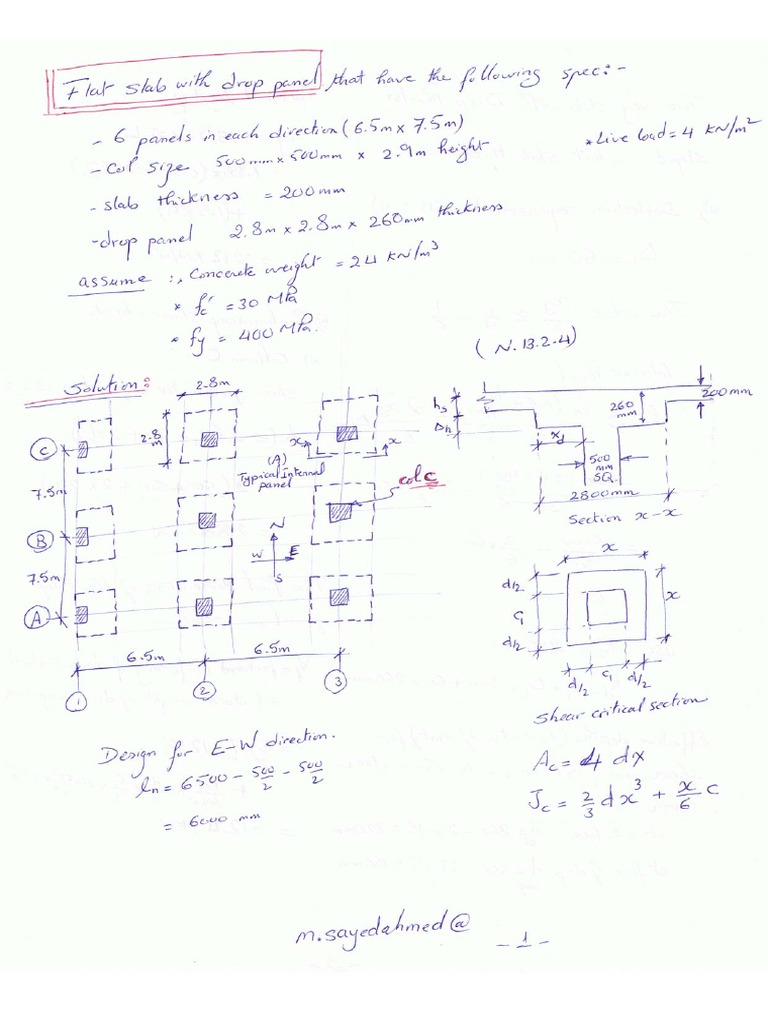 Flat slab with drop panel that have the following spec:-
- 6 panels in each direction (6.5m x 7.5m)
* Live load = 4 KN/m²
- Col size 500mm x 500mm x 2.9m height
- slab thickness = 200mm
- drop panel 2.8m x 2.8m x 260mm thickness
assume :, Concrete weight = 24 KN/m³
* f'c = 30 MPa
* fy = 400 MPa.
(N.13.2.4)
Solution:
2.8m
2.8m
C
B
A
7.5m
7.5m
x
x
(A)
Typical Internal
panel
col C
N
W
E
S
6.5m
6.5m
1
2
3
hs
Δh
260
mm
200mm
xd
500
mm
SQ.
2800mm
Section x-x
x
d/2
C1
d/2
x
d/2
C1
d/2
Shear critical section
Design for E-W direction.
ln = 6500 - 500/2 - 500/2
= 6000 mm
Ac = 4 dx
Jc = 2/3 dx³ + x/6 C
m.sayedahmed@
- 1 -